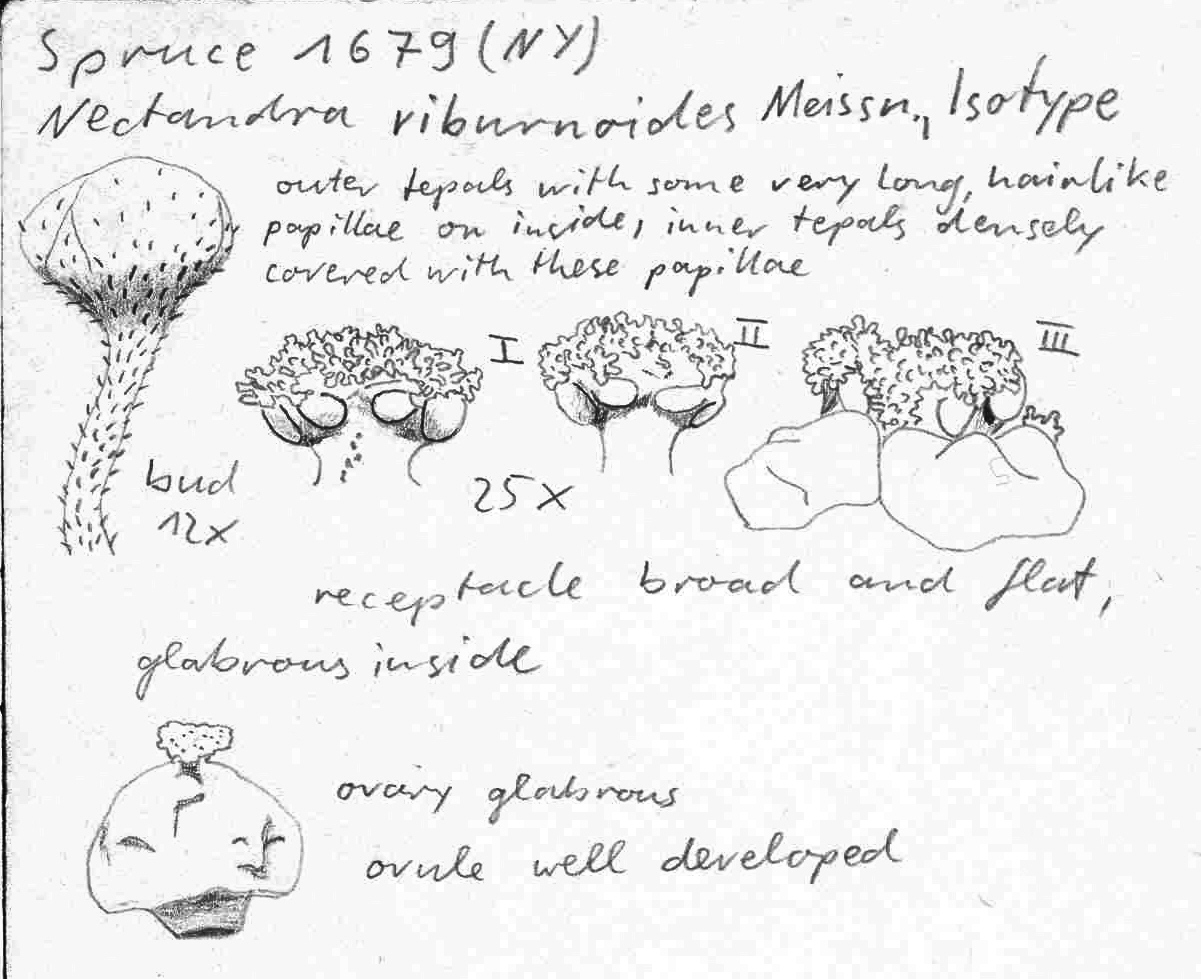 Spruce 1679 (NY)
Nectandra viburnoides Meissn., Isotype
outer tepals with some very long, hairlike
papillae on inside, inner tepals densely
covered with these papillae
I
II
III
bud
12x
25x
receptacle broad and flat,
glabrous inside
ovary glabrous
ovule well developed